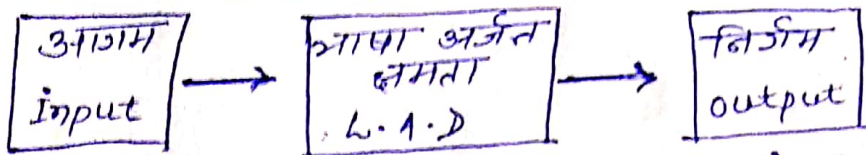 आगम
Input
भाषा अर्जन
क्षमता
L.A.D
निर्गम
output